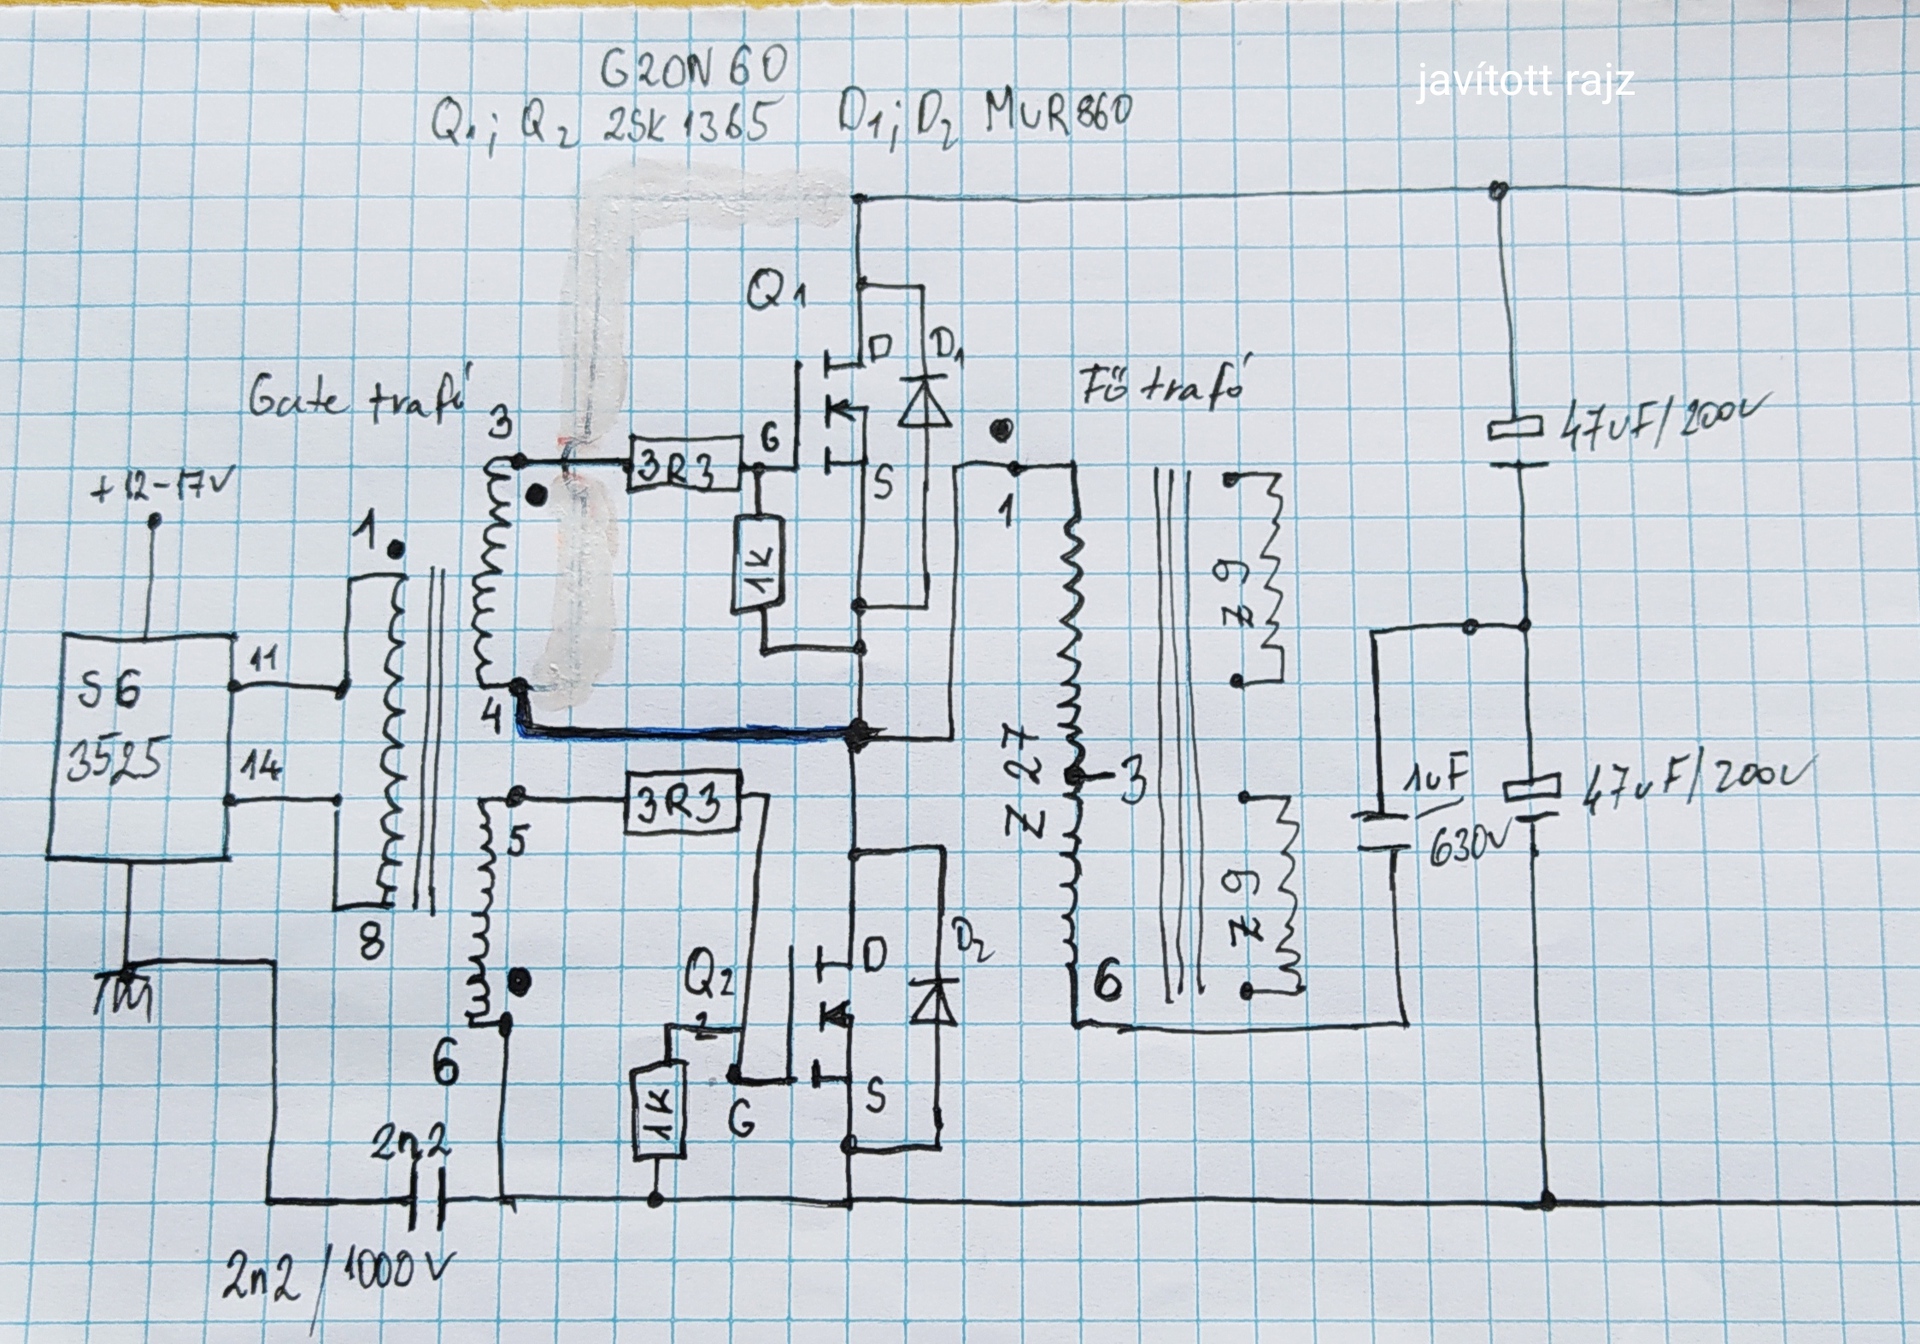 javított rajz
G20N60
Q1; Q2 2SK1365 D1; D2 MUR860
Q1
D
D1
Gate trafó
Fő trafó
3
3R3
G
S
1
47uF/200V
+12-17V
1
1K
Z9
11
4
SG
3525
14
Z27
3
5
3R3
1uF
630V
47uF/200V
8
Z9
D
D2
Q2
6
6
1K
G
S
2n2
2n2/1000V